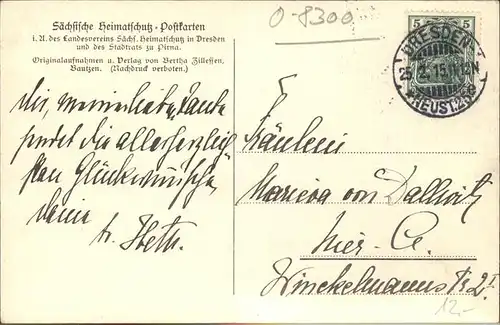 Sächsische Heimatschutz-Postkarten
i. A. des Landesvereins Sächs. Heimatschutz in Dresden
und des Stadtrats zu Pirna.
Originalaufnahmen u. Verlag von Bertha Zillessen,
Bautzen. (Nachdruck verboten.)
O-8300
5 5
DRESDEN
NEUST.
Dir, meine liebe Tante
sendet die allerherzlich
sten Glückwünsche
deine
Fräulein
von Dallwitz
hier-A.
Winckelmannstr. 2I
12,-